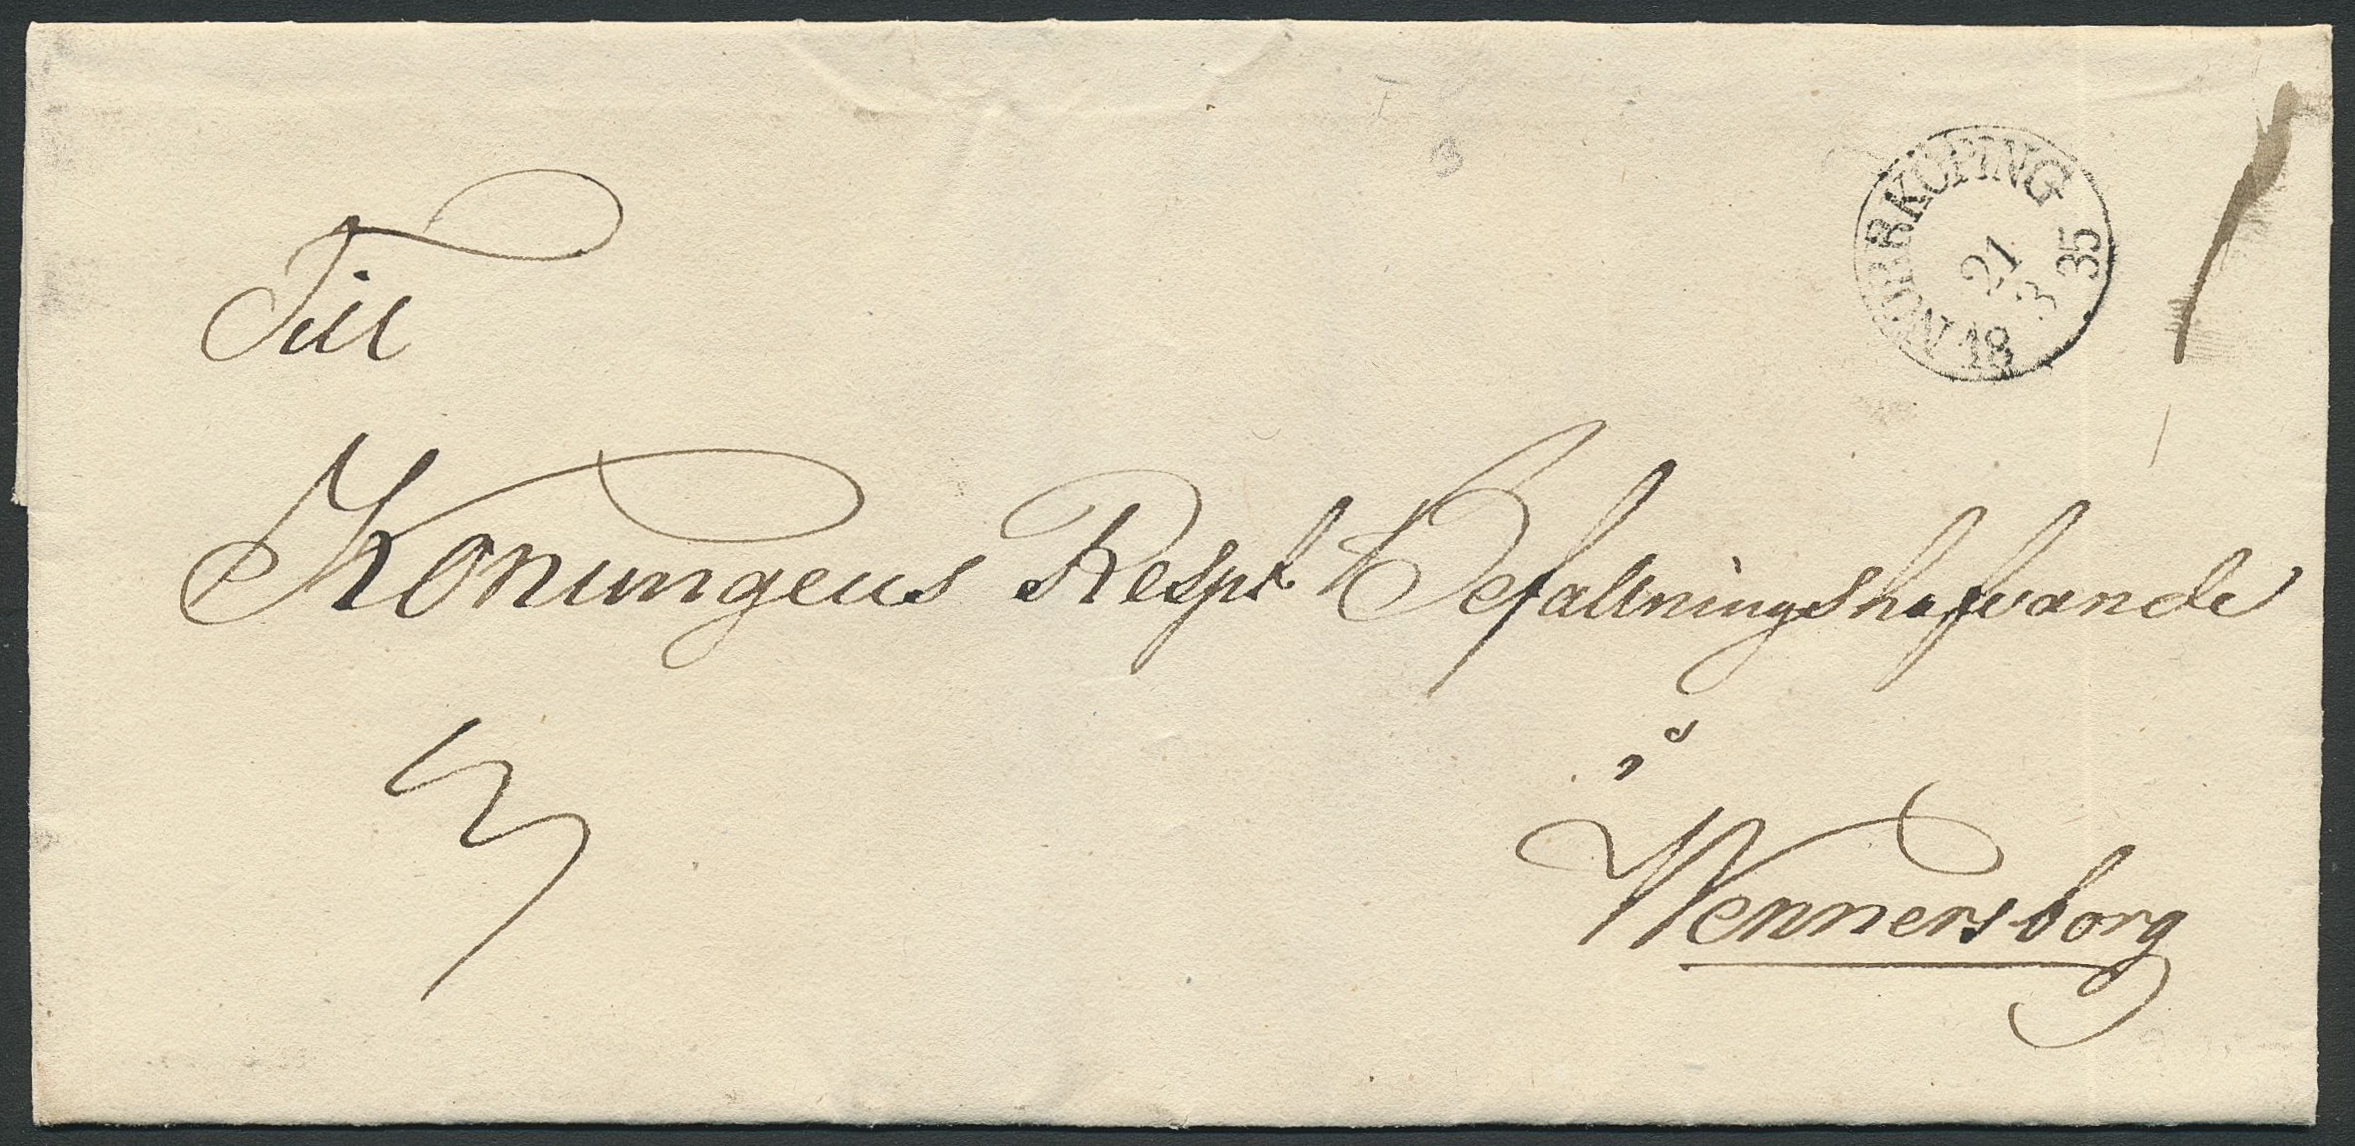 Till
NORRKÖPING
21
3
18 35
Konungens Resp.t Befallningshafvande
i
Wennersborg